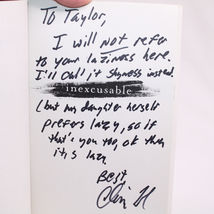 To Taylor,
I will not refer
to your laziness here.
I'll call it shyness instead.
inexcusable
(but my daughter herself
prefers lazy, so if
that's you too, ok then
it is lazy
Best
Chris